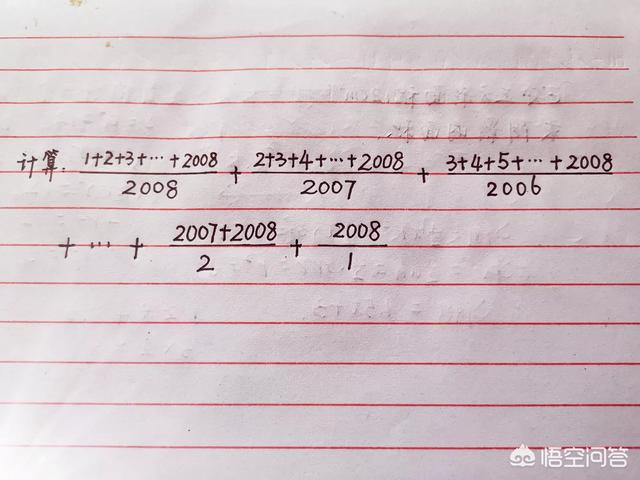 计算: (1+2+3+⋯+2008)/2008 + (2+3+4+⋯+2008)/2007 + (3+4+5+⋯+2008)/2006
+ ⋯ + (2007+2008)/2 + 2008/1
悟空问答